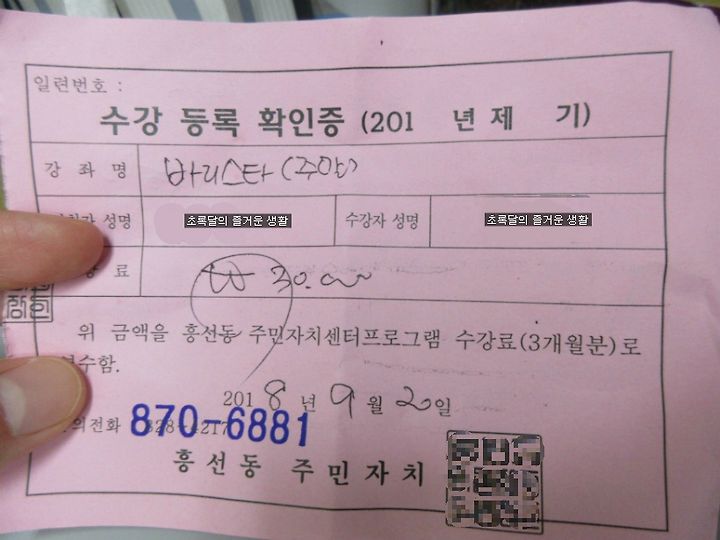 일련번호 :
수강 등록 확인증 (201 년 제 기)
강 좌 명 바리스타 (주야)
성명 초록달의 즐거운 생활 수강자 성명 초록달의 즐거운 생활
료 ₩ 30.000
위 금액을 흥선동 주민자치센터프로그램 수강료(3개월분)로
수함.
2018년 9월 20일
의전화 870-6881
흥선동 주민자치